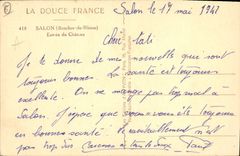 LA DOUCE FRANCE
418 SALON (Bouches-du-Rhône)
Entrée du Château
Salon le 19 mai 1941
Cher
Je te donne de mes nouvelles que sont
toujours bonnes. La santé est toujours
excellente. On ne mange pas trop mal à
Salon. J'espère que vous êtes toujours
en bonne santé. Le ravitaillement n'est
pas trop dur